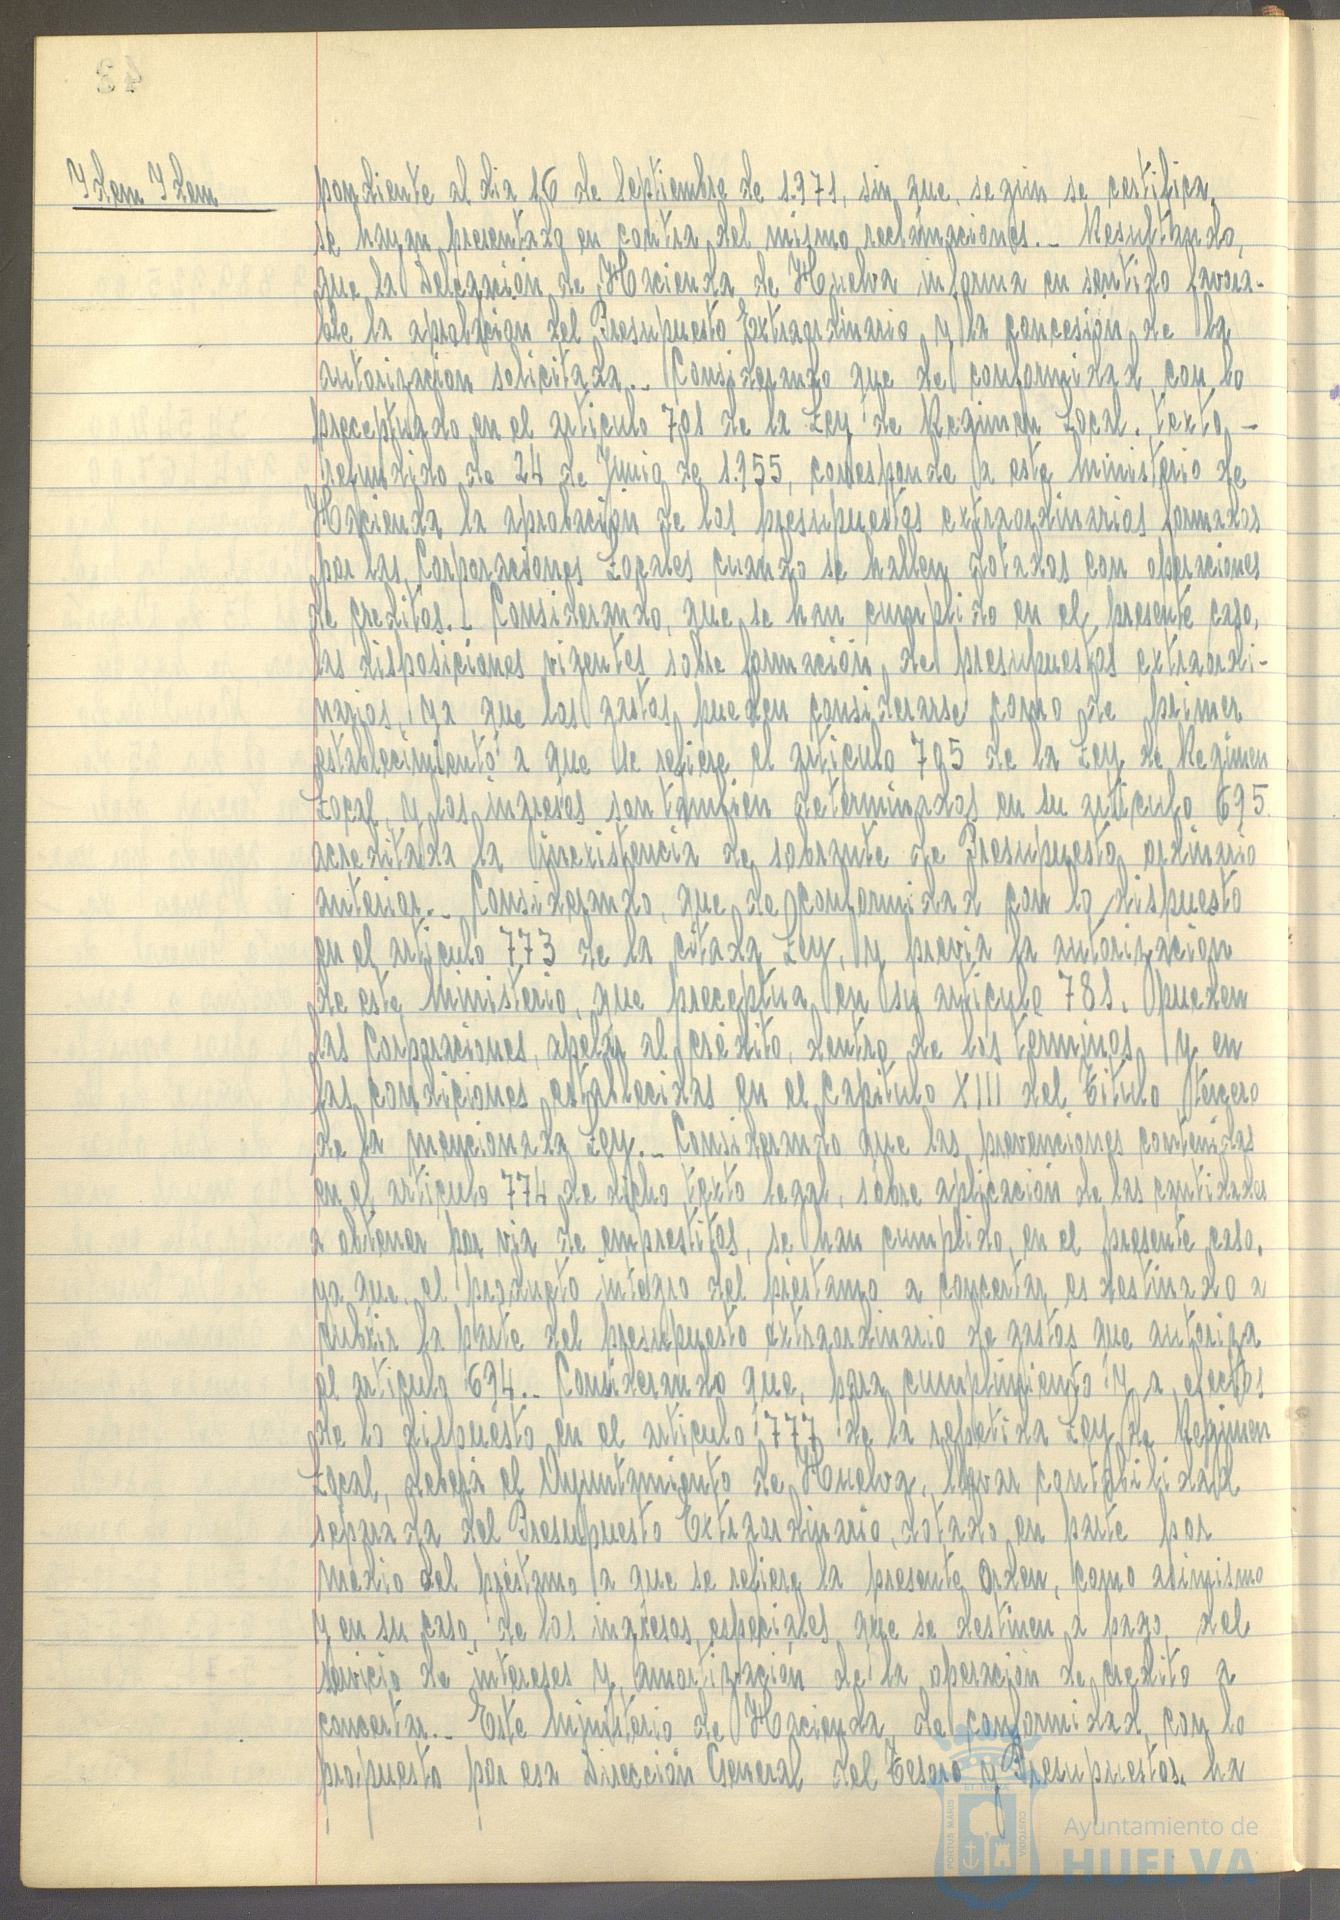 Idem Idem
pondiente al dia 16 de Septiembre de 1.971, sin que, segun se certifica,
se hayan presentado en contra del mismo reclamaciones.- Resultando,
que la Delegación de Hacienda de Huelva informa en sentido favora-
ble la aprobacion del Presupuesto Extraordinario y la concesión de la
autorizacion solicitada.- Considerando que de conformidad con lo
preceptuado en el articulo 701 de la Ley de Regimen Local. texto -
refundido de 24 de Junio de 1.955, corresponde a este Ministerio de
Hacienda la aprobación de los presupuestos extraordinarios formados
por las Corporaciones Locales cuando se hallen dotados con operaciones
de creditos.- Considerando, que se han cumplido en el presente caso,
las disposiciones vigentes sobre formación de presupuestos extraordi-
narios, ya que los gastos pueden considerarse como de primer
establecimiento a que se refiere el articulo 795 de la Ley de Regimen
Local, y los ingresos son tambien determinados en su articulo 695
acreditada la inexistencia de sobrante de Presupuesto ordinario
anterior.- Considerando, que de conformidad con lo dispuesto
en el articulo 773 de la citada Ley, y previa la autorizacion
de este Ministerio, que preceptua en su articulo 781, pueden
las Corporaciones, apelar al crédito, dentro de los terminos y en
las condiciones establecidas en el Capitulo XIII del Titulo tercero
de la mencionada Ley.- Considerando que las prevenciones contenidas
en el articulo 774 de dicho texto legal, sobre aplicación de las cantidades
a obtener por via de emprestitos, se han cumplido, en el presente caso,
ya que, el producto integro del préstamo a concertar es destinado a
cubrir la parte del presupuesto extraordinario de gastos que autoriza
el articulo 694.- Considerando que, para cumplimiento y a efectos
de lo dispuesto en el articulo 777 de la repetida Ley de Regimen
Local, deberá el Ayuntamiento de Huelva, llevar contabilidad
separada del Presupuesto Extraordinario, dotado en parte por
medio del préstamo a que se refiere la presente Orden, como asimismo
y en su caso, de los ingresos especiales que se destinen a pago del
servicio de intereses y amortización de la operación de credito a
concertar.- Este Ministerio de Hacienda, de conformidad con lo
propuesto por esa Dirección General del Tesoro y Presupuestos, ha
Ayuntamiento de
HUELVA